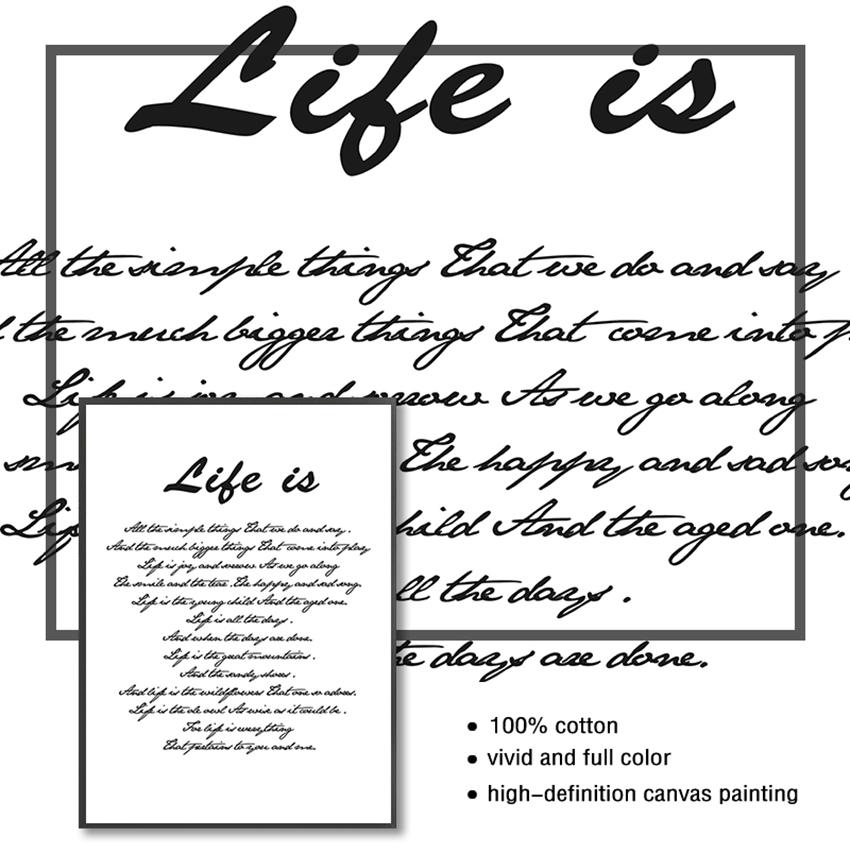 Life is
All the simple things That we do and say
the much bigger things That come into p
Life is joy and sorrow As we go along
sm The happy and sad so
Life hild And the aged one.
ll the days .
he days are done.
Life is
All the simple things That we do and say .
And the much bigger things That come into play
Life is joy and sorrow As we go along
The smile and the tear .The happy and sad song.
Life is the young child And the aged one.
Life is all the days .
And when the days are done.
Life is the great mountains .
And the sandy shores .
And life is the wildflowers That one so adores.
Life is the ole owl As wise as it could be .
For life is everything
That pertains to you and me.
• 100% cotton
• vivid and full color
• high-definition canvas painting